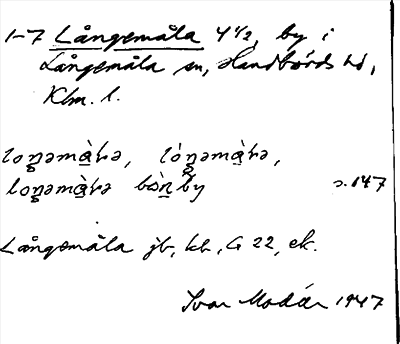 1-7 Långemåla 4 1/2, by i
Långemåla sn, Handbörds hd,
Klm. l.
loŋəmàɾə, lóŋəmàɾə,
loŋəmàɾə bòn by s. 147
Långemåla jb, kb, G 22, ek.
Ivar Modéer 1947